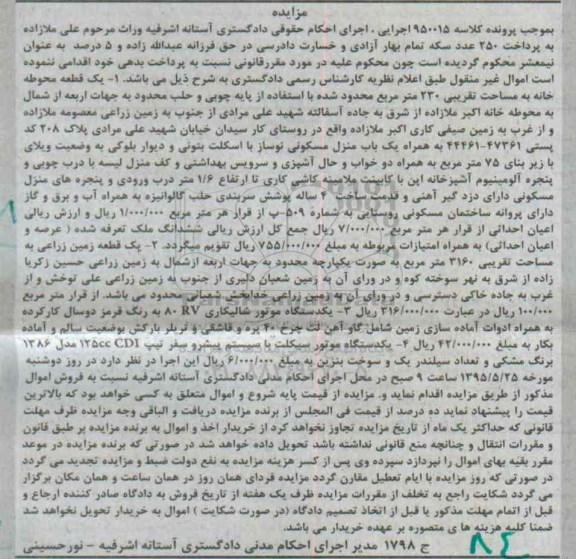 مزایده
بموجب پرونده کلاسه ۹۵۰۰۱۵ اجرایی ، اجرای احکام حقوقی دادگستری آستانه اشرفیه وراث مرحوم علی ملازاده
به پرداخت ۲۵۰ عدد سکه تمام بهار آزادی و خسارت دادرسی در حق فرزانه عبدالله زاده و ۵ درصد به عنوان
نیمعشر محکوم گردیده است چون محکوم علیه در مورد مقررقانونی نسبت به پرداخت بدهی خود اقدامی ننموده
است اموال غیر منقول طبق اعلام نظریه کارشناس رسمی دادگستری به شرح ذیل می باشد. ۱- یک قطعه محوطه
خانه به مساحت تقریبی ۲۳۰ متر مربع محدود شده با استفاده از پایه چوبی و حلب محدود به جهات اربعه از شمال
به محوطه خانه اکبر ملازاده از شرق به جاده آسفالته شهید علی مرادی از جنوب به زمین زراعی معصومه ملازاده
و از غرب به زمین صیفی کاری اکبر ملازاده واقع در روستای کار سیدان خیابان شهید علی مرادی پلاک ۲۰۸ کد
پستی ۴۷۳۶۱-۴۴۴۶۱ به همراه یک باب منزل مسکونی نوساز با اسکلت بتونی و دیوار بلوکی به وضعیت ویلای
با زیر بنای ۷۵ متر مربع به همراه دو خواب و حال آشپزی و سرویس بهداشتی و کف منزل لیسه با درب چوبی و
پنجره آلومینیوم آشپزخانه اپن با کابینت ملامینه کاشی کاری تا ارتفاع ۱/۶ متر درب ورودی و پنجره های منزل
مسکونی دارای دزد گیر آهنی و قدمت ساخت ۲ ساله پوشش سربندی حلب گالوانیزه به همراه آب و برق و گاز
دارای پروانه ساختمان مسکونی روستایی به شماره ۵۰۹-پ از قرار هر متر مربع ۱/۰۰۰/۰۰۰ ریال و ارزش ریالی
اعیان احداثی از قرار هر متر مربع ۷/۰۰۰/۰۰۰ ریال جمع کل ارزش ریالی ششدانگ ملک تعرفه شده ( عرصه و
اعیان احداثی) به همراه امتیازات مربوطه به مبلغ ۷۵۵/۰۰۰/۰۰۰ ریال تقویم میگردد. ۲- یک قطعه زمین زراعی به
مساحت تقریبی ۳۱۶۰ متر مربع به صورت یکپارچه محدود به جهات اربعه ازشمال به زمین زراعی حسین زکریا
زاده از شرق به نهر سوخته کوه و در ورای آن به زمین شعبان دلیری از جنوب به زمین زراعی علی توخش و از
غرب به جاده خاکی دسترسی و در ورای آن به زمین زراعی خدابخش شعبانی محدود می باشد. از قرار متر مربع
۱۰۰/۰۰۰ ریال در عبارت ۳۱۶/۰۰۰/۰۰۰ ریال ۳- یکدستگاه موتور شالیکاری RV ۸۰ به رنگ قرمز دوسال کارکرده
به همراه ادوات آماده سازی زمین شامل گاو آهن لت چرخ ۴۰ پره و قاشقی و تریلر بارکش بوضعیت سالم و آماده
بکار به مبلغ ۴۲/۰۰۰/۰۰۰ ریال ۴- یکدستگاه موتور سیکلت با سیستم پیشرو سفر تیپ ۱۲۵cc CDI مدل ۱۳۸۶
برنگ مشکی و تعداد سیلندر یک و سوخت بنزین به مبلغ ۶/۰۰۰/۰۰۰ ریال این اجرا در نظر دارد در روز دوشنبه
مورخه ۱۳۹۵/۵/۲۵ ساعت ۹ صبح در محل اجرای احکام مدنی دادگستری آستانه اشرفیه نسبت به فروش اموال
مذکور از طریق مزایده اقدام نماید و. مزایده از قیمت پایه شروع و اموال متعلق به کسی خواهد بود که بالاترین
قیمت را پیشنهاد نماید ده درصد از قیمت فی المجلس از برنده مزایده دریافت و الباقی وجه مزایده ظرف مهلت
قانونی که حداکثر یک ماه از تاریخ مزایده تجاوز نخواهد کرد از خریدار اخذ و اموال به برنده مزایده بر طبق قانون
و مقررات انتقال و چنانچه منع قانونی نداشته باشد تحویل داده خواهد شد در صورتی که برنده مزایده در موعد
مقرر بقیه بهای اموال را نپردازد سپرده وی پس از کسر هزینه مزایده به نفع دولت ضبط و مزایده تجدید می گردد
در صورتی که روز مزایده با ایام تعطیل مقارن گردد مزایده فردای همان روز در همان ساعت و همان مکان برگزار
می گردد شکایت راجع به تخلف از مقررات مزایده ظرف یک هفته از تاریخ فروش به دادگاه صادر کننده ارجاع و
قبل از اتمام مهلت مذکور یا قبل از اتخاذ تصمیم دادگاه (در صورت شکایت ) اموال به خریدار تحویل نخواهد شد
ضمنا کلیه هزینه ها ی متصوره بر عهده خریدار می باشد.
ج ۱۷۹۸ مدیر اجرای احکام مدنی دادگستری آستانه اشرفیه - نورحسینی